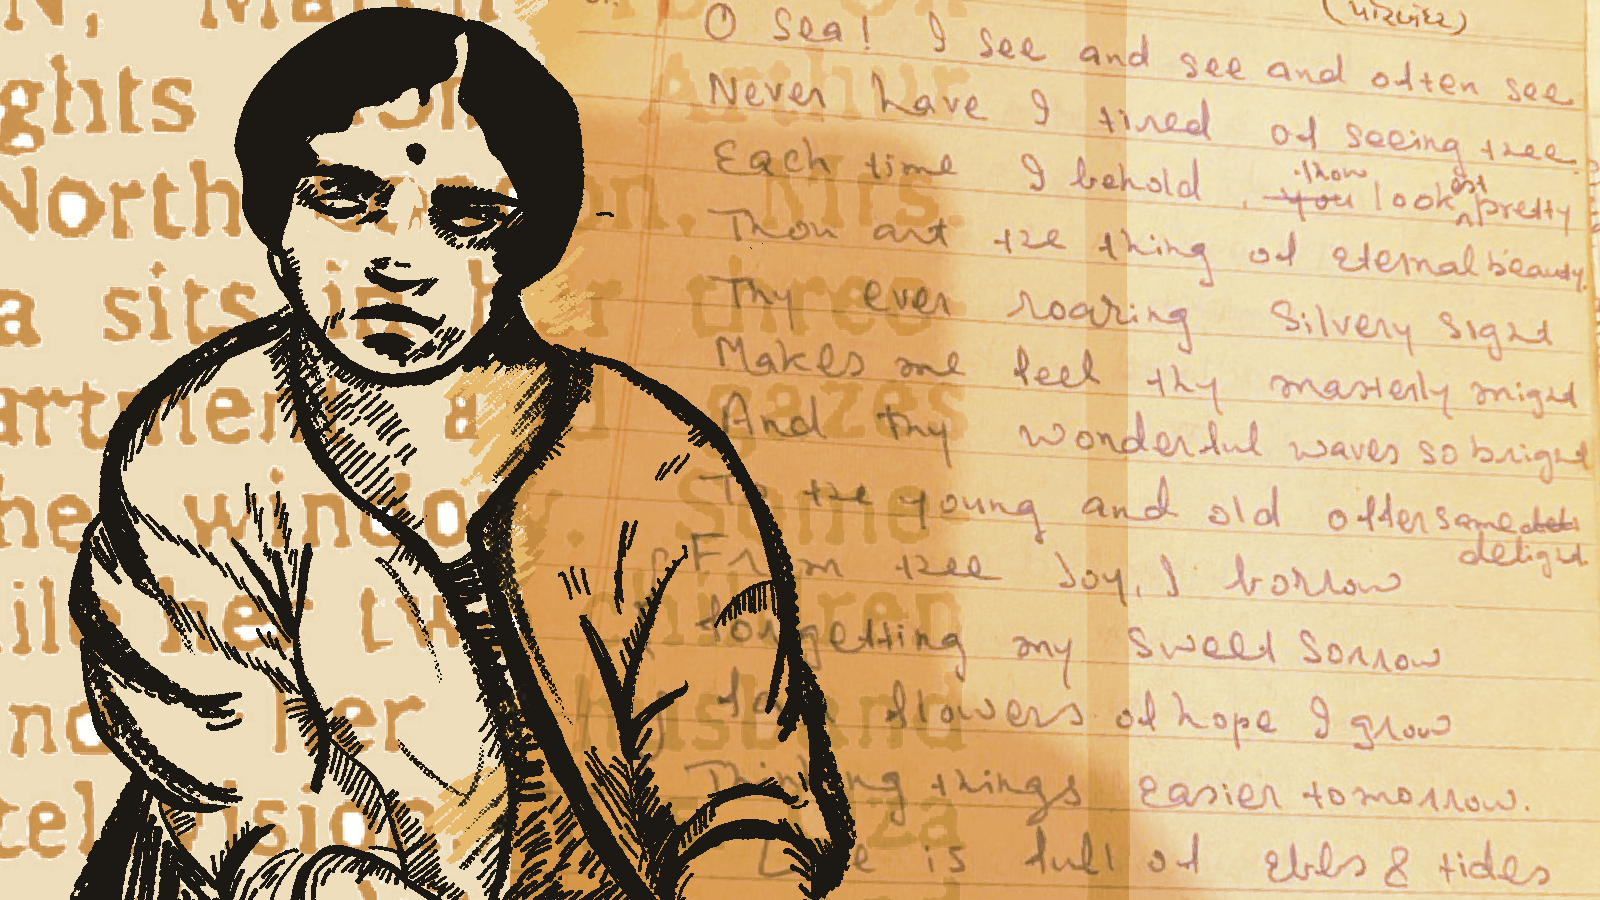 ghts
North
Mrs.
a sits in her three
gazes
her window. Some
children
while her two
and her husband
television
(પરિચય)
O Sea! I see and see and often see
Never have I tired of seeing thee.
Each time I behold, you thou lookest pretty
Thou art the thing of eternal beauty.
Thy ever roaring Silvery sight
Makes me feel thy masterly might
And thy wonderful waves so bright
To the young and old offer same delight
From thee Joy, I borrow
forgetting my sweet sorrow
flowers of hope I grow
Thinking things easier tomorrow.
Life is full of ebbs & tides